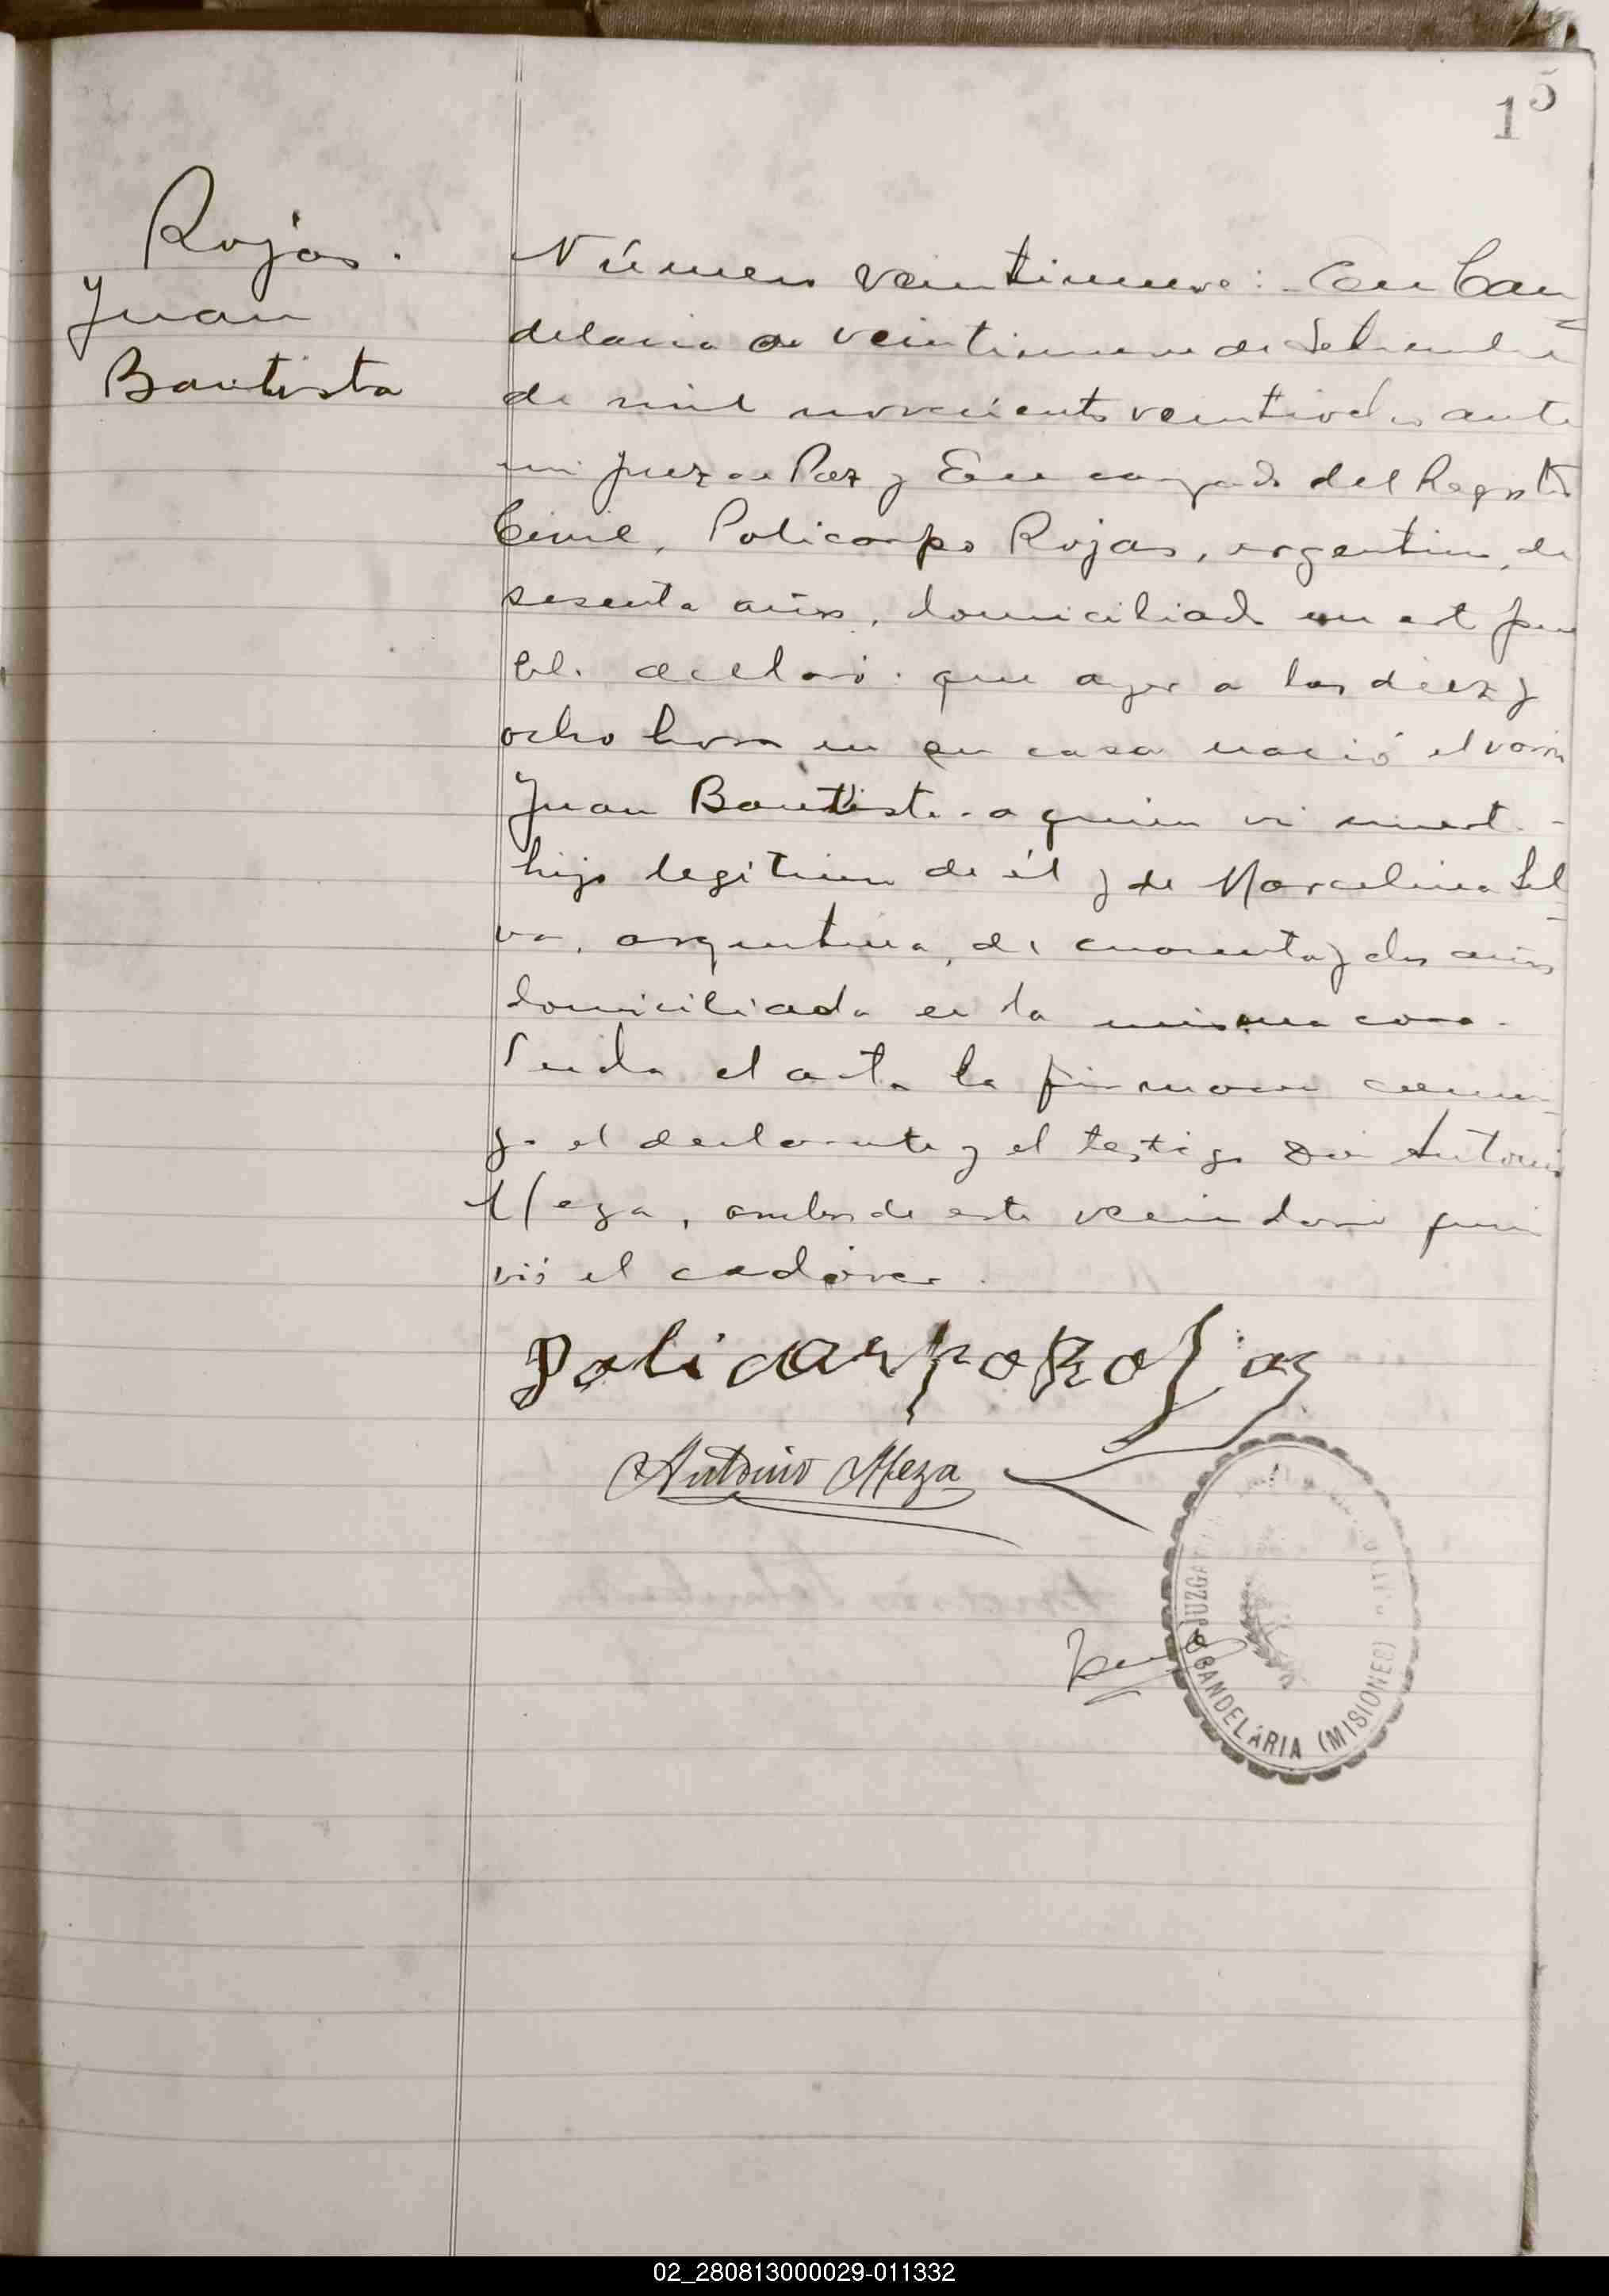 15
Rojas.
Juan
Bautista
Número veintinueve: En Can
delaria a veintinueve de Setiembre
de mil novecientos veintidos ante
mi Juez de Paz y Encargado del Registro
Civil, Policarpo Rojas, argentino, de
sesenta años, domiciliado en este pue
blo declaró: que ayer a las diez y
ocho horas en su casa nació el varón
Juan Bautista a quien vi muerto
hijo legítimo de él y de Marcelina Sil
va, argentina, de cuarenta y dos años
domiciliada en la misma casa.
Leida el acta la firmaron conmi
go el declarante y el testigo Don Antonio
Meza, ambos de este vecindario quien
vió el cadáver.
Policarpo Rojas
Antonio Meza
JUZGADO
CANDELARIA (MISIONES)
02_280813000029-011332